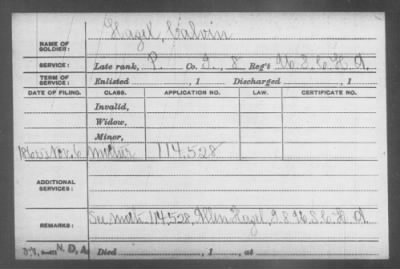 Hazel, Calvin
NAME OF SOLDIER:
SERVICE: Late rank, P. Co. I, 8 Reg't U.S.C.H.A.
TERM OF SERVICE: Enlisted , 1 Discharged , 1
DATE OF FILING. CLASS. APPLICATION NO. LAW. CERTIFICATE NO.
Invalid,
Widow,
Minor,
1865 Nov. 6 Mother 114,528
ADDITIONAL SERVICES:
REMARKS: See Moth. 114,528, Allen Hazel, 8 U.S.C.H.A.
N. D. A. Died , 1 , at